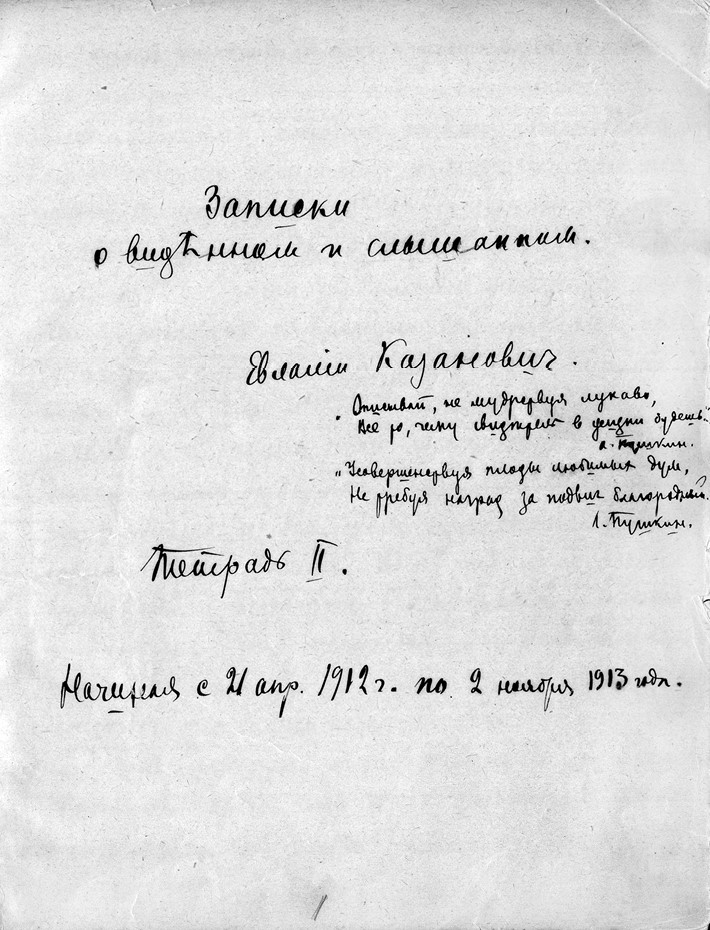 Записки
о видѣнном и слышанном.
Евлалии Казанович.
"Описывай, не мудрствуя лукаво,
Все то, чему свидетель в жизни будешь".
А. Пушкин.
"Усовершенствуя плоды любимых дум,
Не требуя наград за подвиг благородный.
А. Пушкин.
Тетрадь II.
Начиная с 21 апр. 1912 г. по 2 ноября 1913 года.